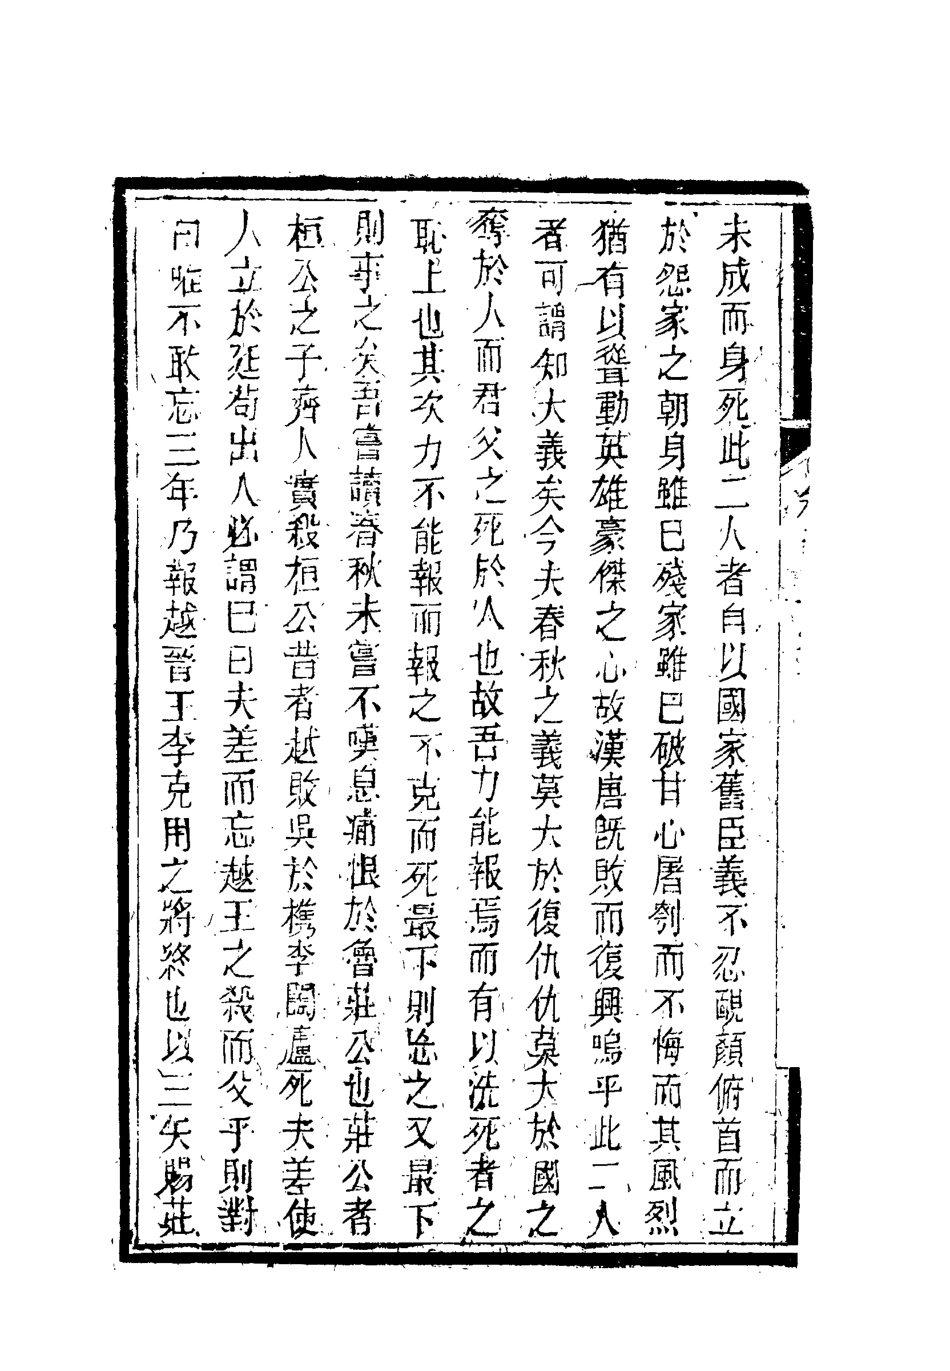 未成而身死此二人者自以國家舊臣義不忍靦顏俯首而立
於怨家之朝身雖已殘家雖已破甘心屠刳而不悔而其風烈
猶有以聳動英雄豪傑之心故漢唐既敗而復興嗚乎此二人
者可謂知大義矣今夫春秋之義莫大於復仇仇莫大於國之
奪於人而君父之死於人也故吾力能報焉而有以洗死者之
恥上也其次力不能報而報之不克而死最下則忘之又最下
則事之矣吾嘗讀春秋未嘗不嘆息痛恨於魯莊公也莊公者
桓公之子齊人實殺桓公昔者越敗吳於檇李闔廬死夫差使
人立於廷苟出人必謂已曰夫差而忘越王之殺而父乎則對
曰唯不敢忘三年乃報越晉王李克用之將終也以三矢賜莊